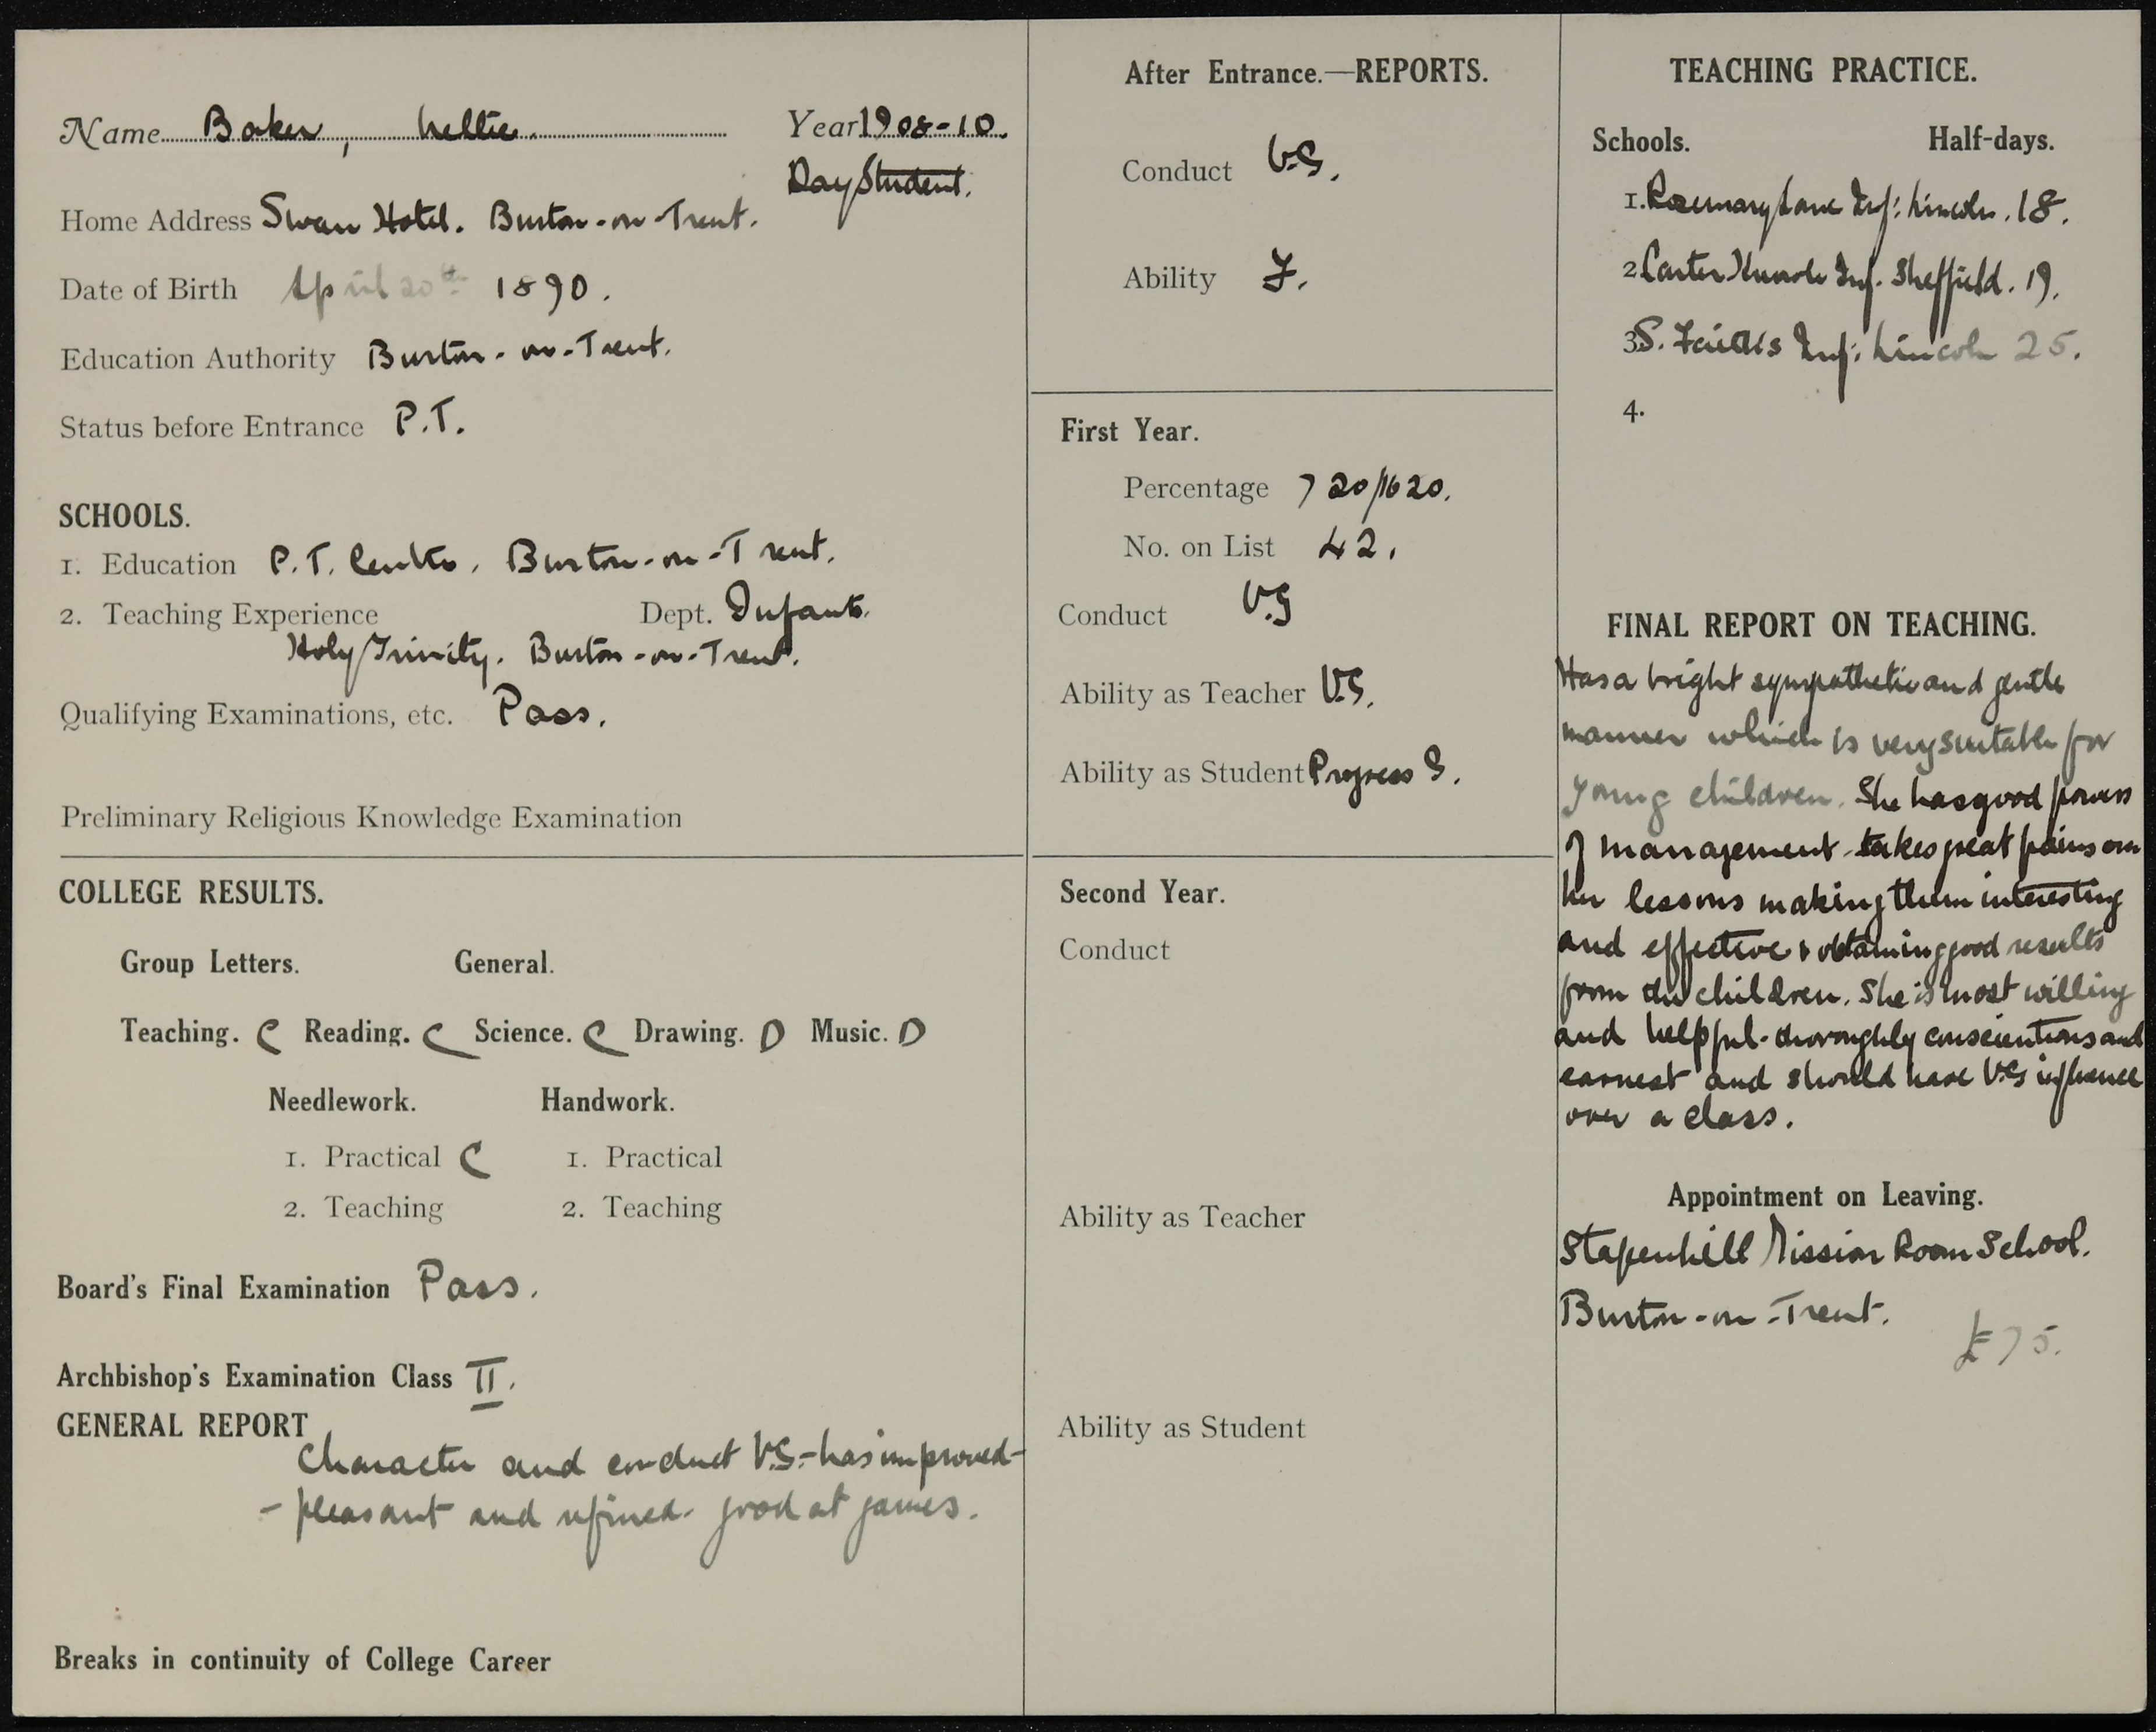 Name Baker, Nellie. Year 1908-10.
Day Student.
Home Address Swan Hotel. Burton-on-Trent.
Date of Birth April 20th 1890.
Education Authority Burton-on-Trent.
Status before Entrance P.T.
SCHOOLS.
1. Education P.T. Centre, Burton-on-Trent.
2. Teaching Experience Dept. Infants.
Holy Trinity. Burton-on-Trent.
Qualifying Examinations, etc. Pass.
Preliminary Religious Knowledge Examination
COLLEGE RESULTS.
Group Letters. General.
Teaching. C Reading. C Science. C Drawing. D Music. D
Needlework. Handwork.
1. Practical C 1. Practical
2. Teaching 2. Teaching
Board's Final Examination Pass.
Archbishop's Examination Class II.
GENERAL REPORT
Character and conduct V.G.-has improved-
- pleasant and refined- good at games.
Breaks in continuity of College Career
After Entrance.—REPORTS.
Conduct V.G.
Ability F.
First Year.
Percentage 720/1620.
No. on List 42.
Conduct V.G
Ability as Teacher V.G.
Ability as Student Progress G.
Second Year.
Conduct
Ability as Teacher
Ability as Student
TEACHING PRACTICE.
Schools. Half-days.
1. Rosemary Lane Inf: Lincoln. 18.
2. Carter Knowle Inf. Sheffield. 19.
3. S. Faith's Inf: Lincoln 25.
4.
FINAL REPORT ON TEACHING.
Has a bright sympathetic and gentle
manner which is very suitable for
young children. She has good powers
of management - takes great pains over
her lessons making them interesting
and effective & obtaining good results
from the children. She is most willing
and helpful - thoroughly conscientious and
earnest and should have V.G influence
over a class.
Appointment on Leaving.
Stapenhill Mission Room School.
Burton-on-Trent.
£75.